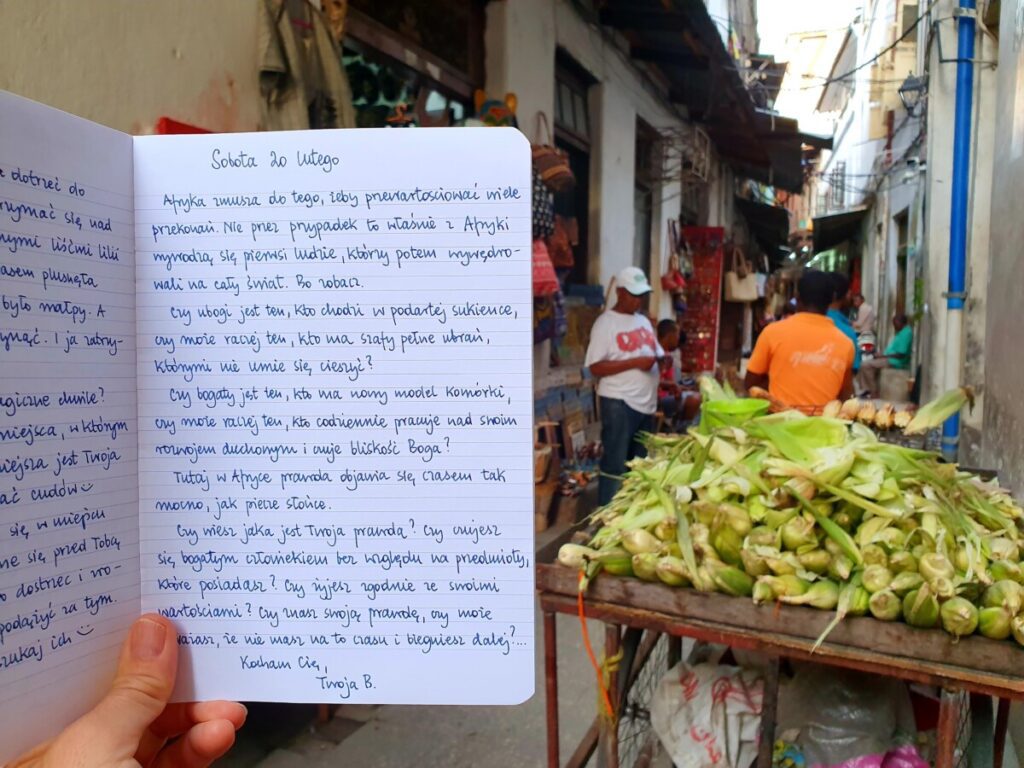 dotrzeć do
rzymać się nad
nymi liśćmi lilii
asem plusnęła
było małpy. A
ymać. I ja zatrzy-
agiczne chwile?
miejsca, w którym
iejsza jest Twoja
ać cudów
się w miejscu
ne się przed Tobą
o dostrzec i wo-
podążyć za tym.
zukaj ich
Sobota 20 lutego
Afryka zmusza do tego, żeby przewartościować wiele
przekonań. Nie przez przypadek to właśnie z Afryki
wywodzą się pierwsi ludzie, którzy potem wywędro-
wali na cały świat. Bo zobacz.
Czy ubogi jest ten, kto chodzi w podartej sukience,
czy może raczej ten, kto ma szafy pełne ubrań,
którymi nie umie się cieszyć?
Czy bogaty jest ten, kto ma nowy model komórki,
czy może raczej ten, kto codziennie pracuje nad swoim
rozwojem duchowym i czuje bliskość Boga?
Tutaj w Afryce prawda objawia się czasem tak
mocno, jak piecze słońce.
Czy wiesz jaka jest Twoja prawda? Czy czujesz
się bogatym człowiekiem bez względu na przedmioty,
które posiadasz? Czy żyjesz zgodnie ze swoimi
wartościami? Czy znasz swoją prawdę, czy może
uważasz, że nie masz na to czasu i biegniesz dalej?...
Kocham Cię,
Twoja B.